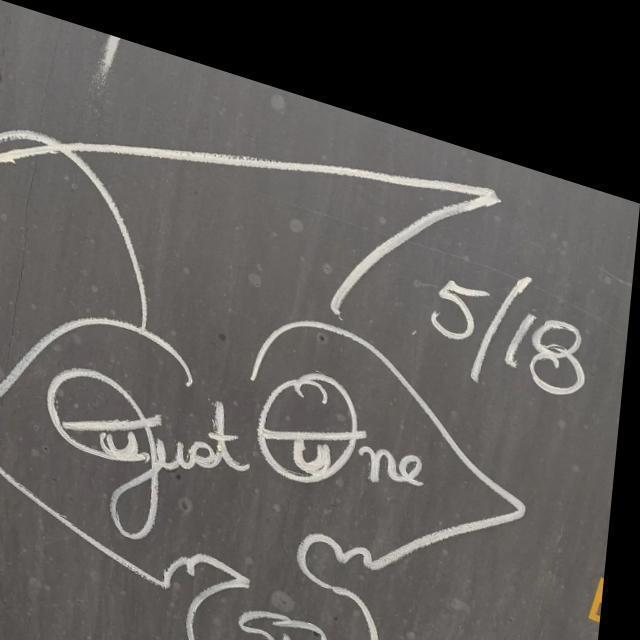 5/18
Just One